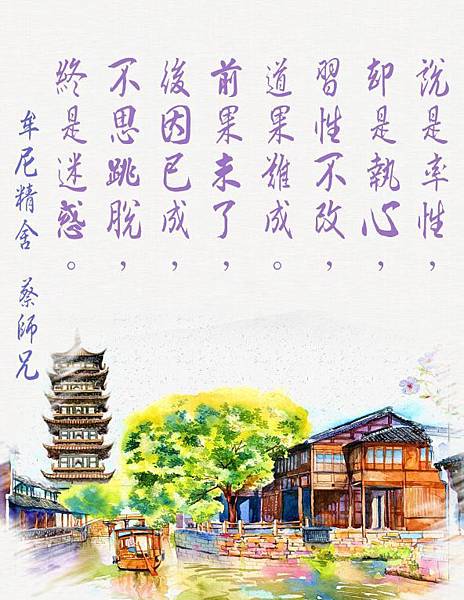 說是率性，
却是執心，
習性不改，
道果難成。
前果未了，
後因已成，
不思跳脫，
終是迷惑。
牟尼精舍 蔡師兄